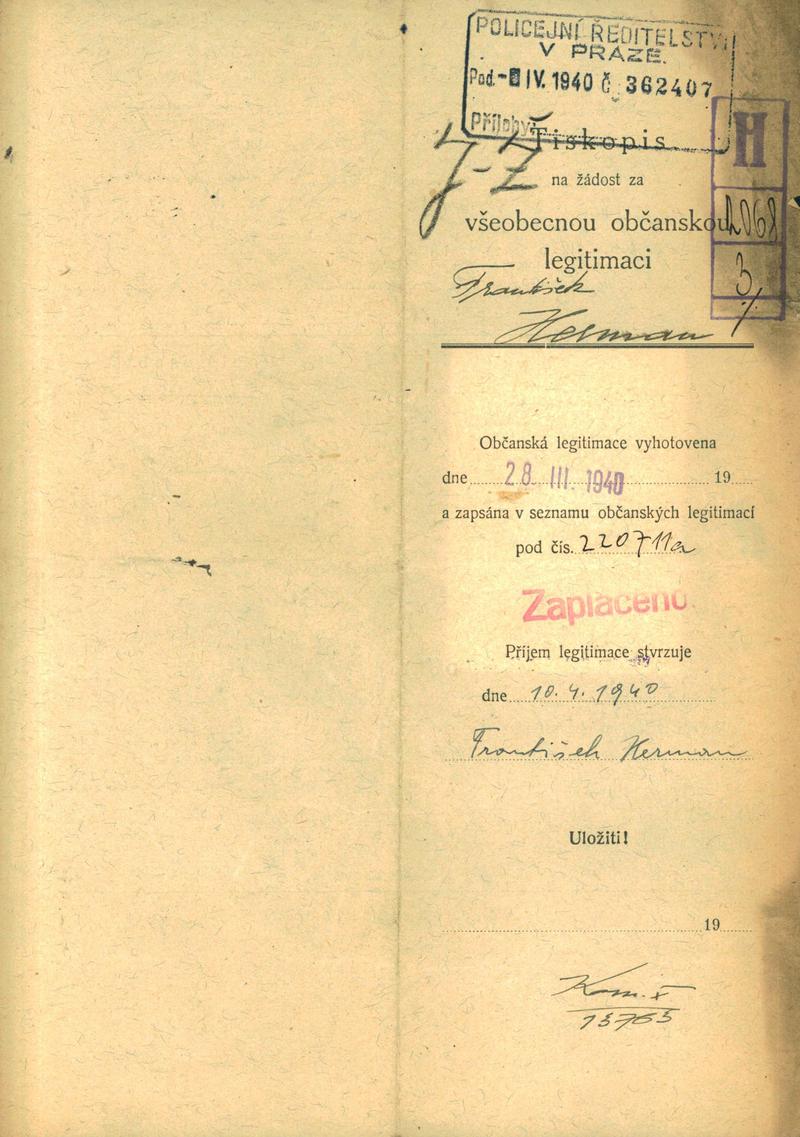 POLICEJNÍ ŘEDITELSTVÍ
V PRAZE.
Pod. IV. 1940 č. 362407
Přílohy
Tiskopis
na žádost za
všeobecnou občanskou
legitimaci
H
3
František
Herman
Občanská legitimace vyhotovena
dne 28. III. 1940 19
a zapsána v seznamu občanských legitimací
pod čís. 220711a
Zaplaceno
Příjem legitimace stvrzuje
dne 10. 4. 1940
František Herman
Uložiti!
19